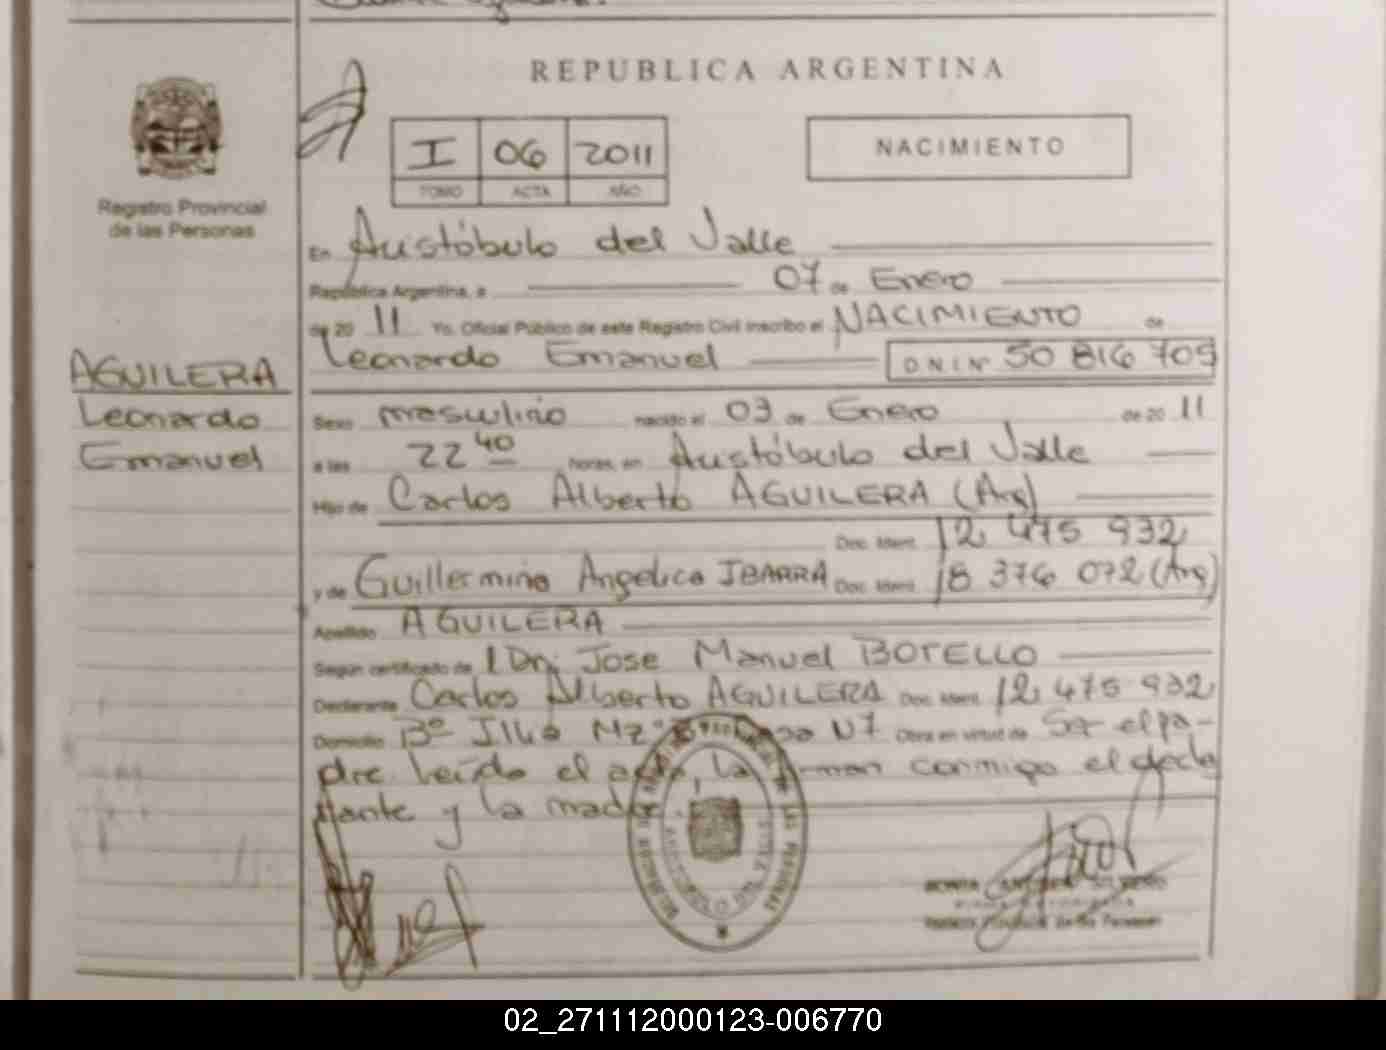 REPUBLICA ARGENTINA
I 06 2011
TOMO ACTA AÑO
NACIMIENTO
Registro Provincial
de las Personas
En Aristóbulo del Valle
República Argentina, a 07 de Enero
de 20 11 Yo, Oficial Público de este Registro Civil inscribo el NACIMIENTO de
Leonardo Emanuel DNI Nº 50 816 705
AGUILERA
Leonardo
Emanuel
Sexo masculino nacido el 03 de Enero de 20 11
a las 22 40 horas en Aristóbulo del Valle
Hijo de Carlos Alberto AGUILERA (Arg)
Doc. Ident. 12 475 932
y de Guillermina Angelica IBARRA Doc. Ident. 18 376 072 (Arg)
Apellido AGUILERA
Según certificado de Jose Manuel BOTELLO
Declarante Carlos Alberto AGUILERA Doc. Ident. 12 475 932
Domicilio Bº Illia Mz Nº7 Obra en virtud de Ser el pa-
dre leída el acta, la firman conmigo el decla
rante y la madre
02_271112000123-006770